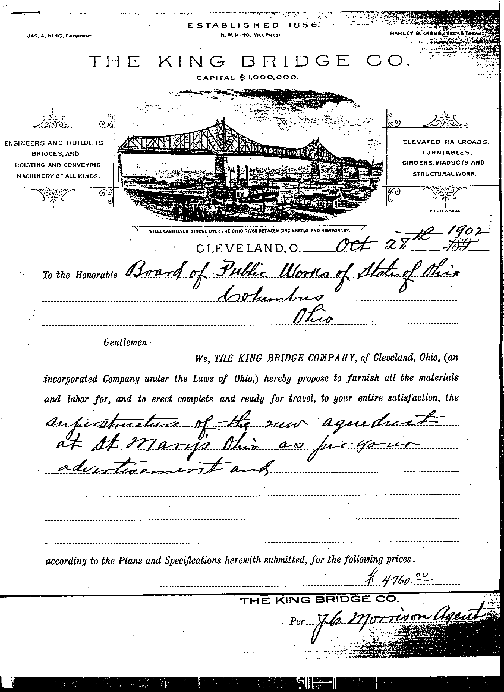 ESTABLISHED 1856.
JAS. A. KING, President H. W. KING, Vice Pres't HARLEY B. GIBBS, Sec'y & Treas.
THE KING BRIDGE CO.
CAPITAL $1,000,000.
ENGINEERS AND BUILDERS
BRIDGES, AND
HOISTING AND CONVEYING
MACHINERY OF ALL KINDS.
ELEVATED RAILROADS,
TURNTABLES,
GIRDERS, VIADUCTS AND
STRUCTURAL WORK.
CLEVELAND, O. Oct 28th 1902
To the Honorable Board of Public Works of State of Ohio
Columbus
Ohio
Gentlemen:
We, THE KING BRIDGE COMPANY, of Cleveland, Ohio, (an
incorporated Company under the Laws of Ohio,) hereby propose to furnish all the materials
and labor for, and to erect complete and ready for travel, to your entire satisfaction, the
superstructure of the new aqueduct
at St Mary's Ohio as per your
advertisement and
according to the Plans and Specifications herewith submitted, for the following prices.
$ 4760.00
THE KING BRIDGE CO.
Per J.C. Morrison Agent